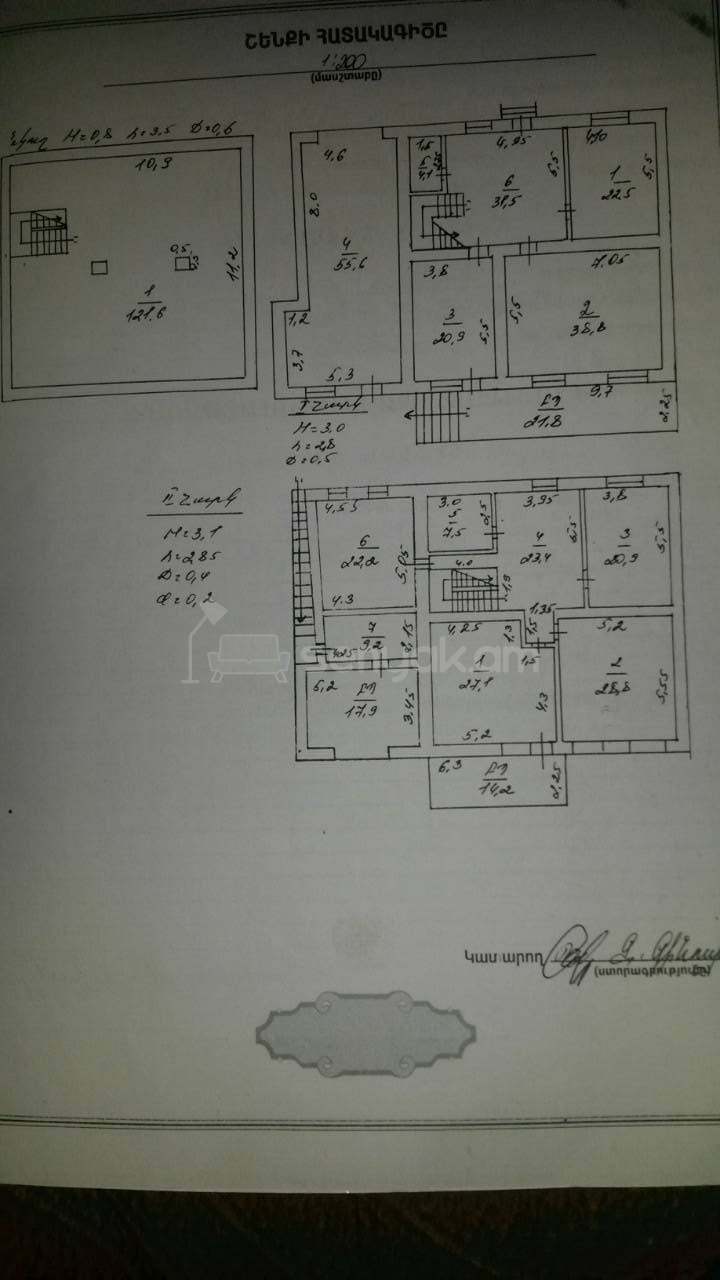 ՇԵՆՔԻ ՀԱՏԱԿԱԳԻԾԸ
1:200
(մասշտաբը)
Նկուղ H=0,8 h=3,5 D=0,6
10,9
11,2
0,5
1
121.6
4,6
8.0
4
55,6
1,2
3,7
5.3
1,5
5
4,1
4,95
5,5
6
31,5
4,10
5,5
1
22.5
3,8
3
20,9
5,5
7.05
5,5
2
38,8
9,7
2,25
21,8
I Հարկ
H=3.0
h=2,8
D=0,5
II Հարկ
H=3,1
h=2.85
D=0,4
d=0,2
4,55
6
22,2
5,05
4.3
3.0
5
7,5
2,5
3,95
4
23,4
5,5
4.0
1,9
3,8
3
20,9
5,5
7
9,2
2,15
5,2
17,9
3,45
4,25
1,3
1,35
1,5
1,5
1
27,1
4,3
5,2
5,2
2
28,8
5,55
6,3
14,2
2,25
senyak.am
Կատարող
(ստորագրությունը)